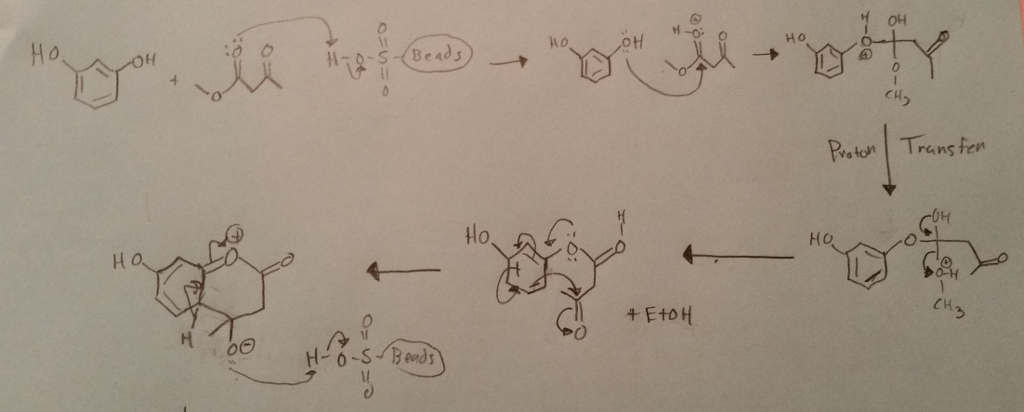 HO OH + O O O H-O-S-Beads O O
HO OH H-O ⊕ O O
HO H O ⊕ OH O O CH3
Proton Transfer
HO O OH O-H ⊕ CH3 O
HO O O H O + EtOH
HO O ⊕ O H O ⊖
H-O-S-Beads O O